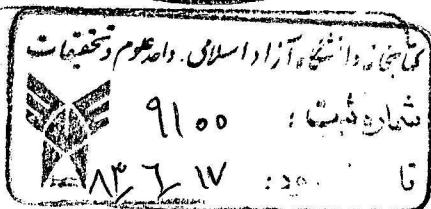 کتابخانه دانشگاه آزاد اسلامی. واحد علوم و تحقیقات
شماره ثبت: ۹۱۰۰
تا ود: ۸۳/۶/۱۷